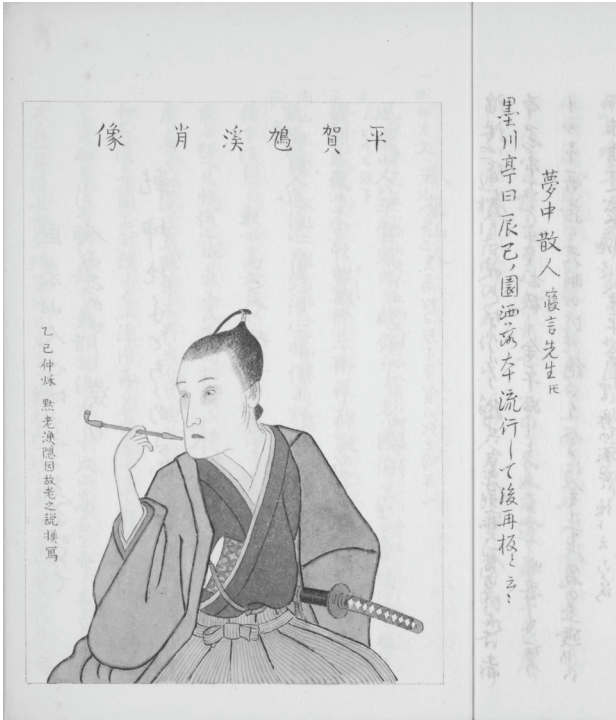 夢中散人 寢言先生
墨川亭曰辰巳ノ園洒落本流行して後再板と云〻
平賀鳩溪肖像
乙巳仲秌 默老漁隠因故老之説摸寫